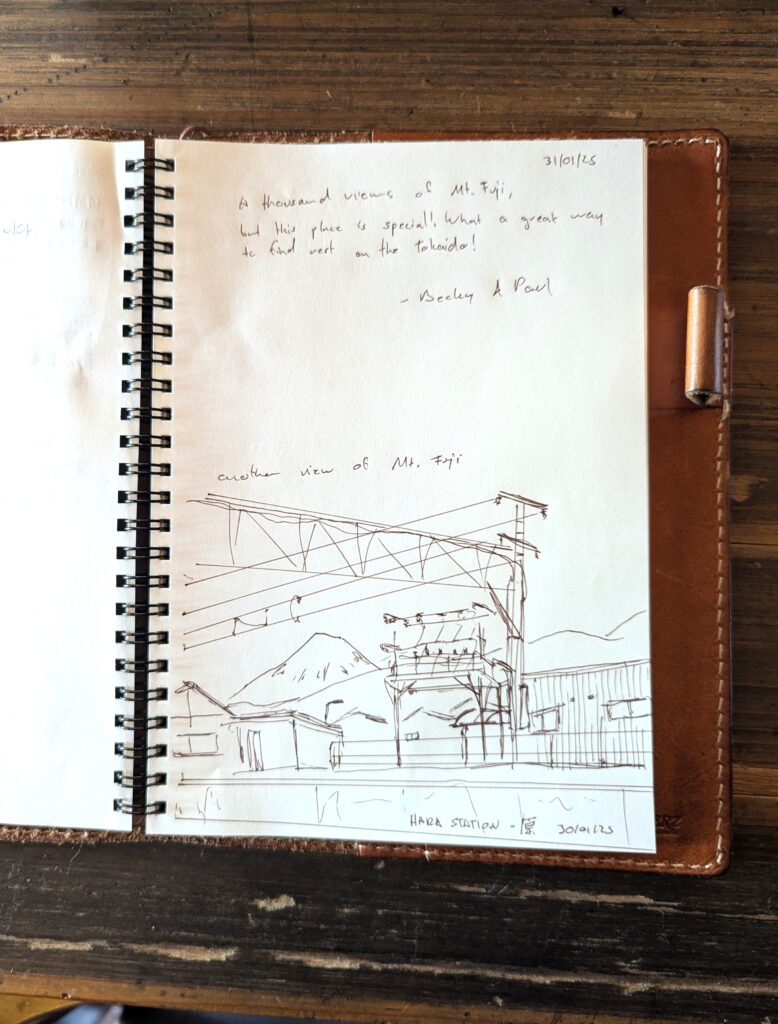 31/01/25
A thousand views of Mt. Fuji,
but this place is special! What a great way
to find rest on the tokaido!
- Becky & Paul
another view of Mt. Fuji
HARA STATION - 原 30/01/25